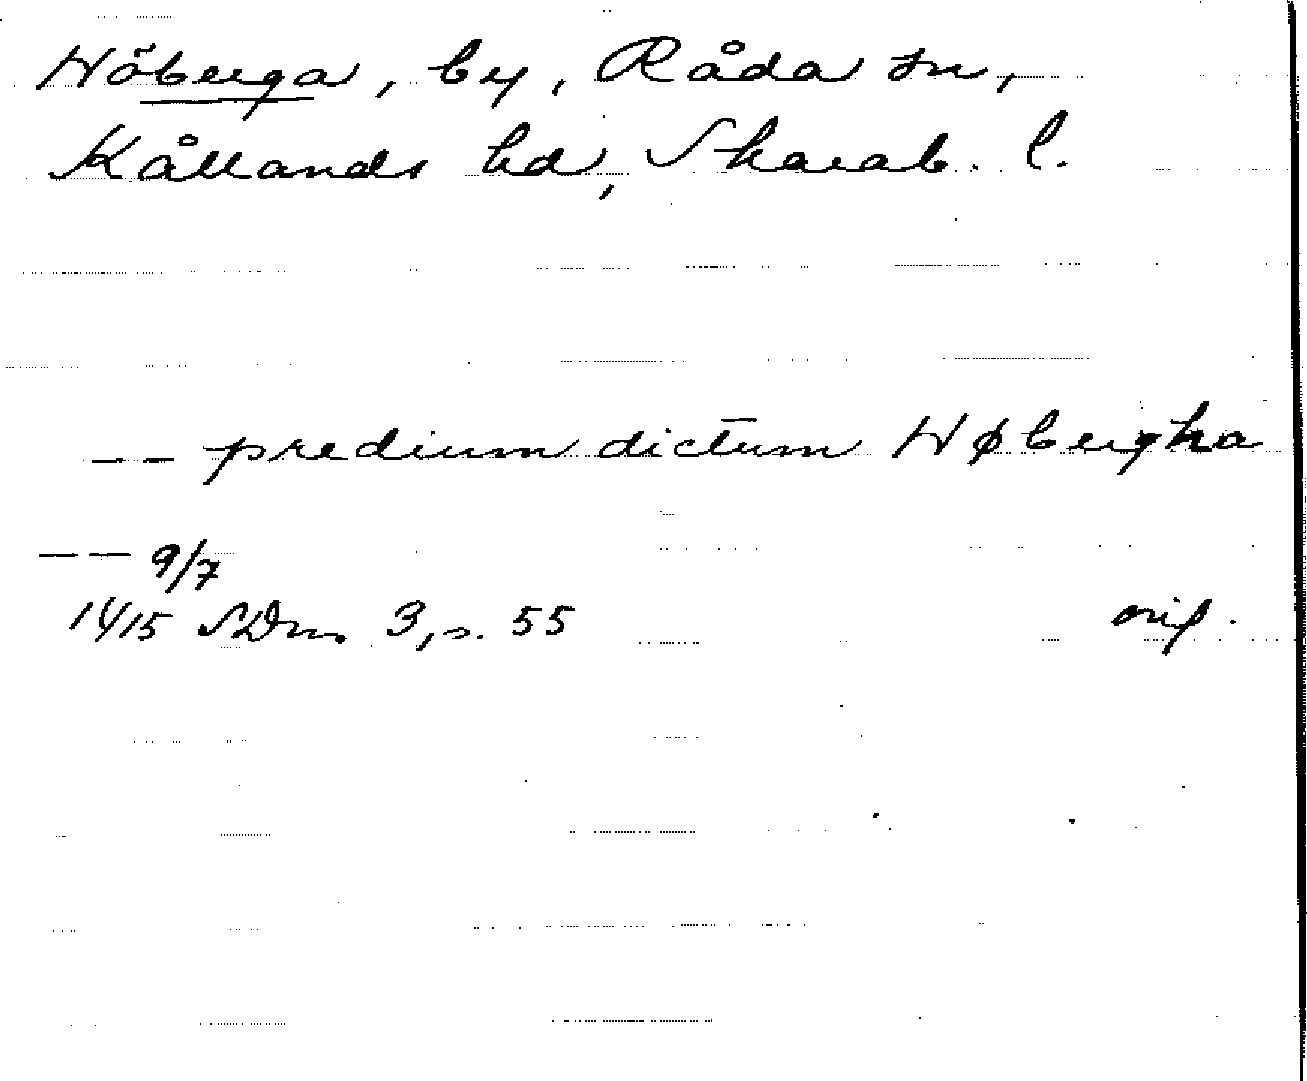 Höberga, by, Råda sn,
Kållands hd, Skarab. l.
— — predium dictum Høbergha
— — 9/7
1415 SDns 3, s. 55 orig.